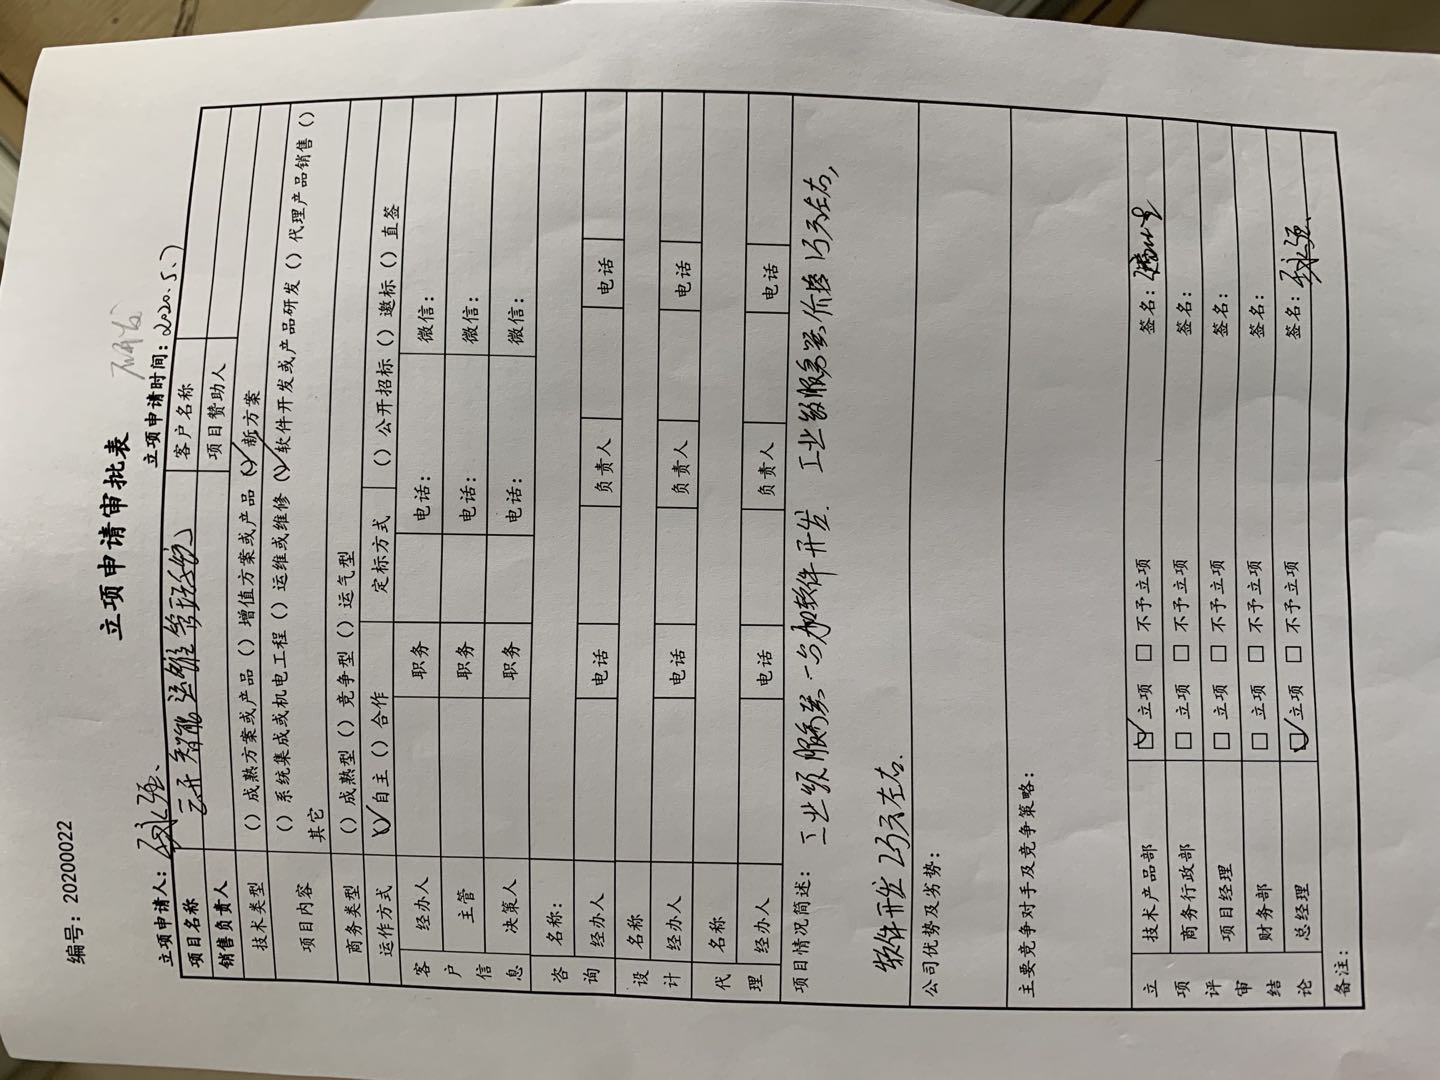 编号：20200022
立项申请审批表
研发
立项申请人：王永强
立项申请时间：2020.5.7
项目名称 云开智能运维管理系统 客户名称
销售负责人 项目赞助人
技术类型 （）成熟方案或产品（）增值方案或产品（√）新方案
项目内容 （）系统集成或机电工程（）运维或维修（√）软件开发或产品研发（）代理产品销售（）
其它
商务类型 （）成熟型（）竞争型（）运气型
运作方式 （√）自主（）合作 定标方式 （）公开招标（）邀标（）直签
客户信息 经办人 职务 电话： 微信：
主管 职务 电话： 微信：
决策人 职务 电话： 微信：
咨询 名称：
经办人 电话 负责人 电话
设计 名称
经办人 电话 负责人 电话
代理 名称
经办人 电话 负责人 电话
项目情况简述：工业级服务器一台加软件开发. 工业级服务器价格1万元左右,
软件开发2万元左右.
公司优势及劣势：
主要竞争对手及竞争策略：
立项评审结论 技术产品部 ☑ 立项 □ 不予立项 签名：
商务行政部 □ 立项 □ 不予立项 签名：
项目经理 □ 立项 □ 不予立项 签名：
财务部 □ 立项 □ 不予立项 签名：
总经理 ☑ 立项 □ 不予立项 签名：王永强
备注：